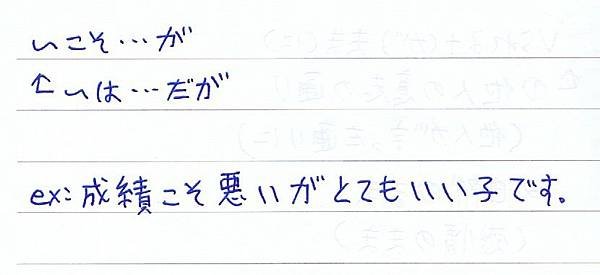 〃こそ…が
↑〃は…だが
ex:成績こそ悪いがとてもいい子です。